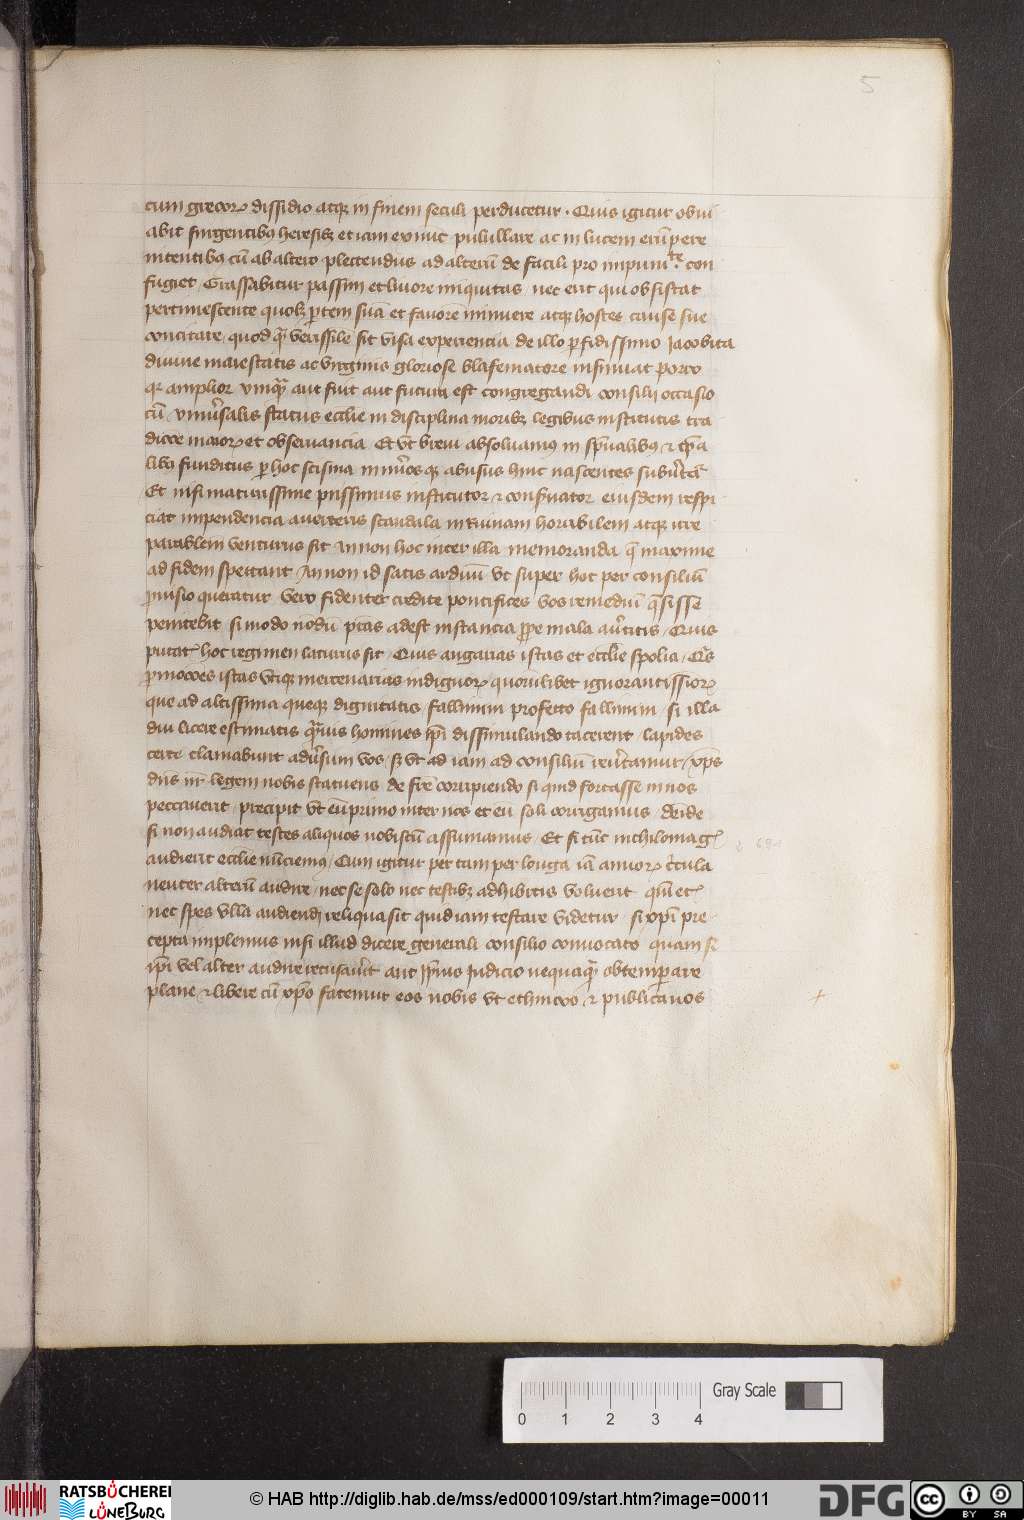 5
cum grecorꝝ dissidio atqꝫ in finem seculi perducetur · Quis igitur obui
abit surgentibꝰ heresibꝫ et iam ex nunc pulullare ac in lucem erūpere
nitentibꝰ cū ab altero plectendus ad alterū de facili pro impunitᵗᵉ con
fugiet / Grassabitur passim et liuore iniquitas nec erit qui obsistat
pertimescente quolꝫ ꝑtem suā et fauorē minuere atqꝫ hostes cause sue
concitare quod qͣ verissīle sit visa experiencia de illo ꝑfidissimo Jacobita
diuine maiestatis ac virginis gloriose blasfematore insinuat porro
qꝛ amplior vnqͣ aut fuit aut futura est congregandi consilij occasio
cū vniūsalis status ecclie in disciplina moribꝫ legibus institutis tra
dicōe maiorꝝ et obseruancia Et vt breui absoluamus in spūalibꝰ ⁊ tꝑa
libꝰ funditus ꝑ hoc scisma
Et nisi maturissime piissimus institutor ⁊ conseruator eiusdem respi
ciat impendencia auerteris scandala in Ruinam horribilem atqꝫ irre
parabilem venturus sit An non hoc inter illa memoranda q̄ maxime
ad fidem spectant An non id satis arduū vt super hoc per consiliū
ꝓuisio queratur vero fidenter credite pontifices vos remediū q̄sisse
penitebit si modo nōdū
putat hoc regimen laturus sit / Quis angarias istas et ecclie spolia /
ꝓmocōes istas vtiqꝫ mercenarias indignorꝝ quorumlibet ignorantissiorꝝ
que ad altissima queqꝫ dignitatis / fallimini profecto fallimini / si illa
diu licere estimatis qͣuis homines ip̄i dissimulando tacerent / lapides
certe clamabunt adūsum vos / sꝫ vt ad iam ad consiliū reūtamur / xp̄s
dn̄s nr̄ legem nobis statuens de fr̄e corripiendo si quid fortasse in nos
peccauerit / precipit vt eū primo inter nos et eū soli corrigamus / deīde
si non audiat testes aliquos nobiscū assumamus / Et si tūc nichilomagꝭ
audierit ecclie nūciemꝰ / Cum igitur per tam per longa iā annorꝝ cͬcula
neuter alterū audire / nec se solo nec testibꝫ adhibitis voluerit qm̄ etꝭ
nec spes vlla audiendi reliqua sit quid iam restare videtur si xp̄i pre
cepta implemus nisi illud dicere generali consilio conuocato quam si
ip̄i vel alter audire recusauīt aut ip̄ius Judicio nequaqͣ obtemperare
plane ⁊ libere cū xp̄o fatemur eos nobis vt ethnicos ⁊ publicanos
Gray Scale
0 1 2 3 4
RATSBÜCHEREI
LÜNEBURG
© HAB http://diglib.hab.de/mss/ed000109/start.htm?image=00011
DFG
cc BY SA